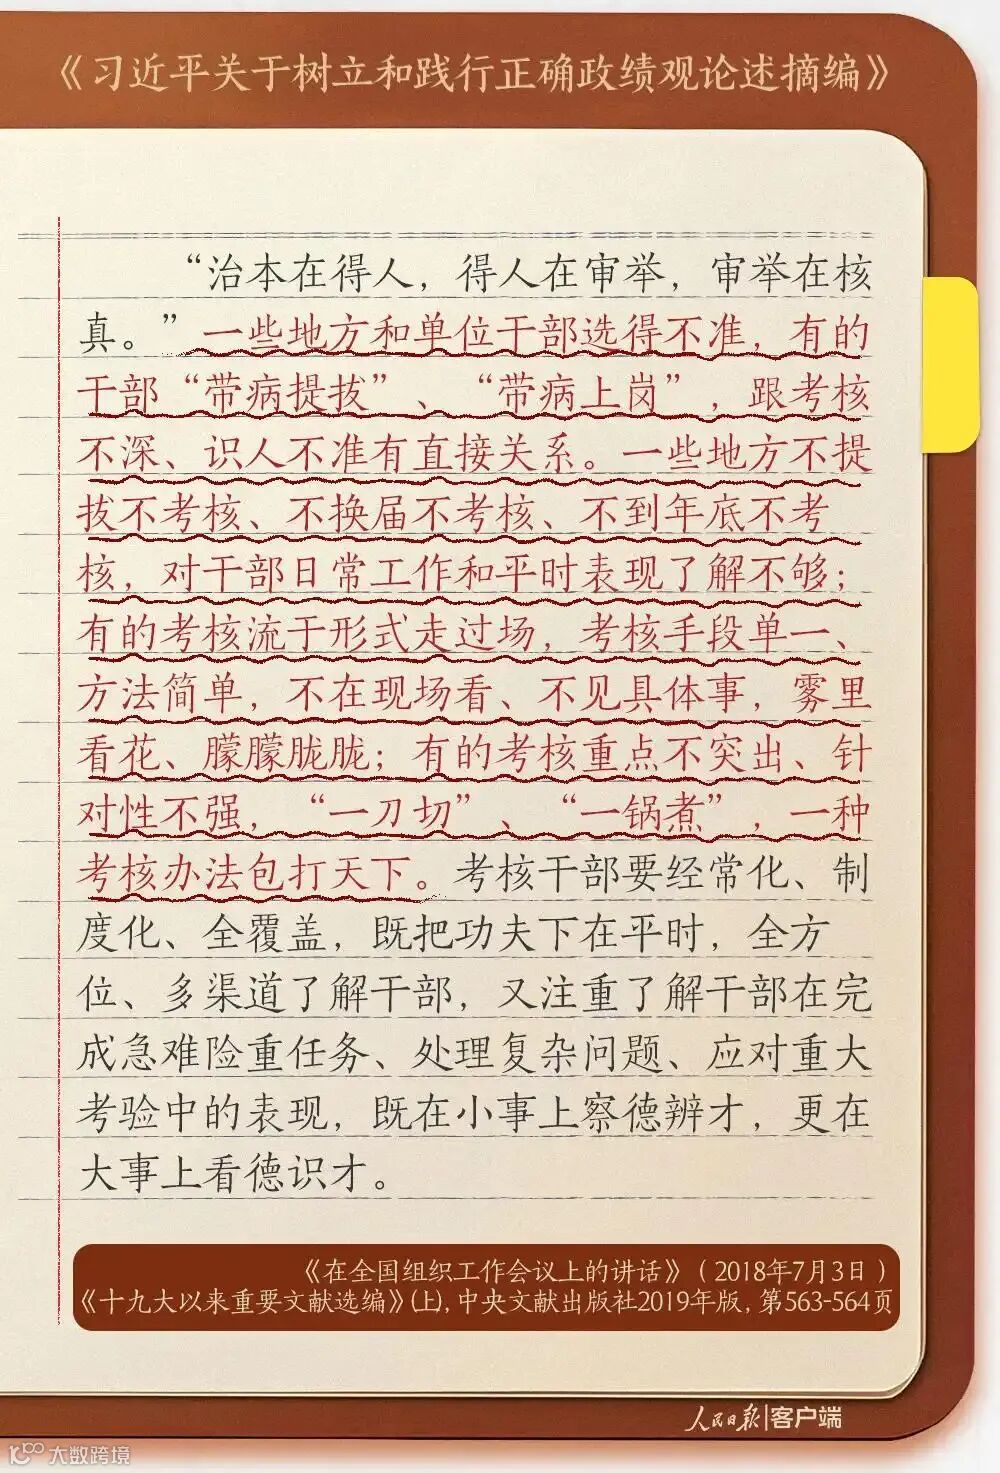 《习近平关于树立和践行正确政绩观论述摘编》
“治本在得人，得人在审举，审举在核
真。”一些地方和单位干部选得不准，有的
干部“带病提拔”、“带病上岗”，跟考核
不深、识人不准有直接关系。一些地方不提
拔不考核、不换届不考核、不到年底不考
核，对干部日常工作和平时表现了解不够；
有的考核流于形式走过场，考核手段单一、
方法简单，不在现场看、不见具体事，雾里
看花、朦朦胧胧；有的考核重点不突出、针
对性不强，“一刀切”、“一锅煮”，一种
考核办法包打天下。考核干部要经常化、制
度化、全覆盖，既把功夫下在平时，全方
位、多渠道了解干部，又注重了解干部在完
成急难险重任务、处理复杂问题、应对重大
考验中的表现，既在小事上察德辨才，更在
大事上看德识才。
《在全国组织工作会议上的讲话》（2018年7月3日）
《十九大以来重要文献选编》(上)，中央文献出版社2019年版，第563-564页
人民日报|客户端
大数跨境